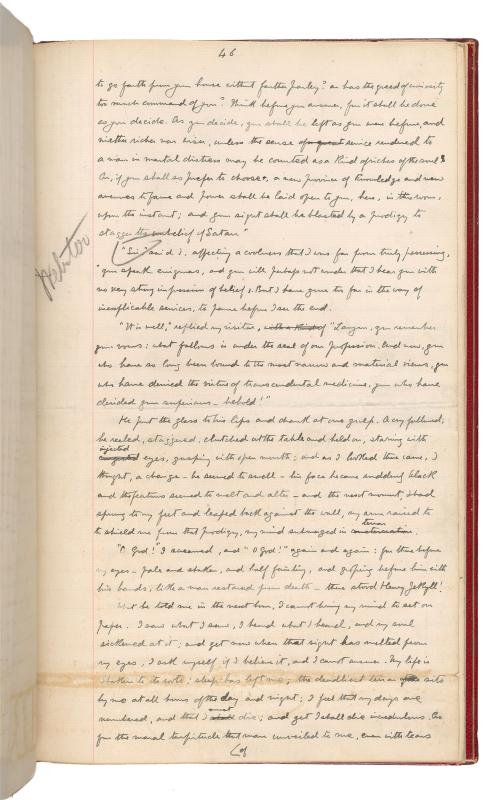 46
to go forth from your house without further parley? or has the greed of curiosity
too much command of you? Think before you answer, for it shall be done
as you decide. As you decide, you shall be left as you were before, and
neither richer nor wiser, unless the sense of service rendered to
a man in mortal distress may be counted as a kind of riches of the soul?
Or, if you shall so prefer to choose, a new province of knowledge and new
avenues to fame and power shall be laid open to you, here, in this room,
upon the instant; and your sight shall be blasted by a prodigy to
stagger the unbelief of Satan."
"Sir" said I, affecting a coolness that I was far from truly possessing,
"you speak enigmas, and you will perhaps not wonder that I hear you with
no very strong impression of belief. But I have gone too far in the way of
inexplicable services, to pause before I see the end.
Webster
"It is well," replied my visitor, with a kind of "Lanyon, you remember
your vows: what follows is under the seal of our profession. And now, you
who have so long been bound to the most narrow and material views, you
who have denied the virtue of transcendental medicine, you who have
derided your superiors – behold!"
He put the glass to his lips and drank at one gulp. A cry followed;
he reeled, staggered, clutched at the table and held on, staring with
injected
eyes, gasping with open mouth; and as I looked there came, I
thought, a change – he seemed to swell – his face became suddenly black
and the features seemed to melt and alter – and the next moment, I had
sprung to my feet and leaped back against the wall, my arm raised
to shield me from that prodigy, my mind submerged in
terror
"O God!" I screamed, and "O God!" again and again; for there before
my eyes – pale and shaken, and half fainting, and groping before him with
his hands, like a man restored from death – there stood Henry Jekyll!
What he told me in the next hour, I cannot bring my mind to set on
paper. I saw what I saw, I heard what I heard, and my soul
sickened at it; and yet now when that sight has melted from
my eyes, I ask myself if I believe it, and I cannot answer. My life is
shaken to its roots; sleep has left me; the deadliest terror sits
by me at all hours of the day and night; I feel that my days are
numbered, and that I must die; and yet I shall die incredulous. As
for the moral turpitude that man unveiled to me, even with tears
(of